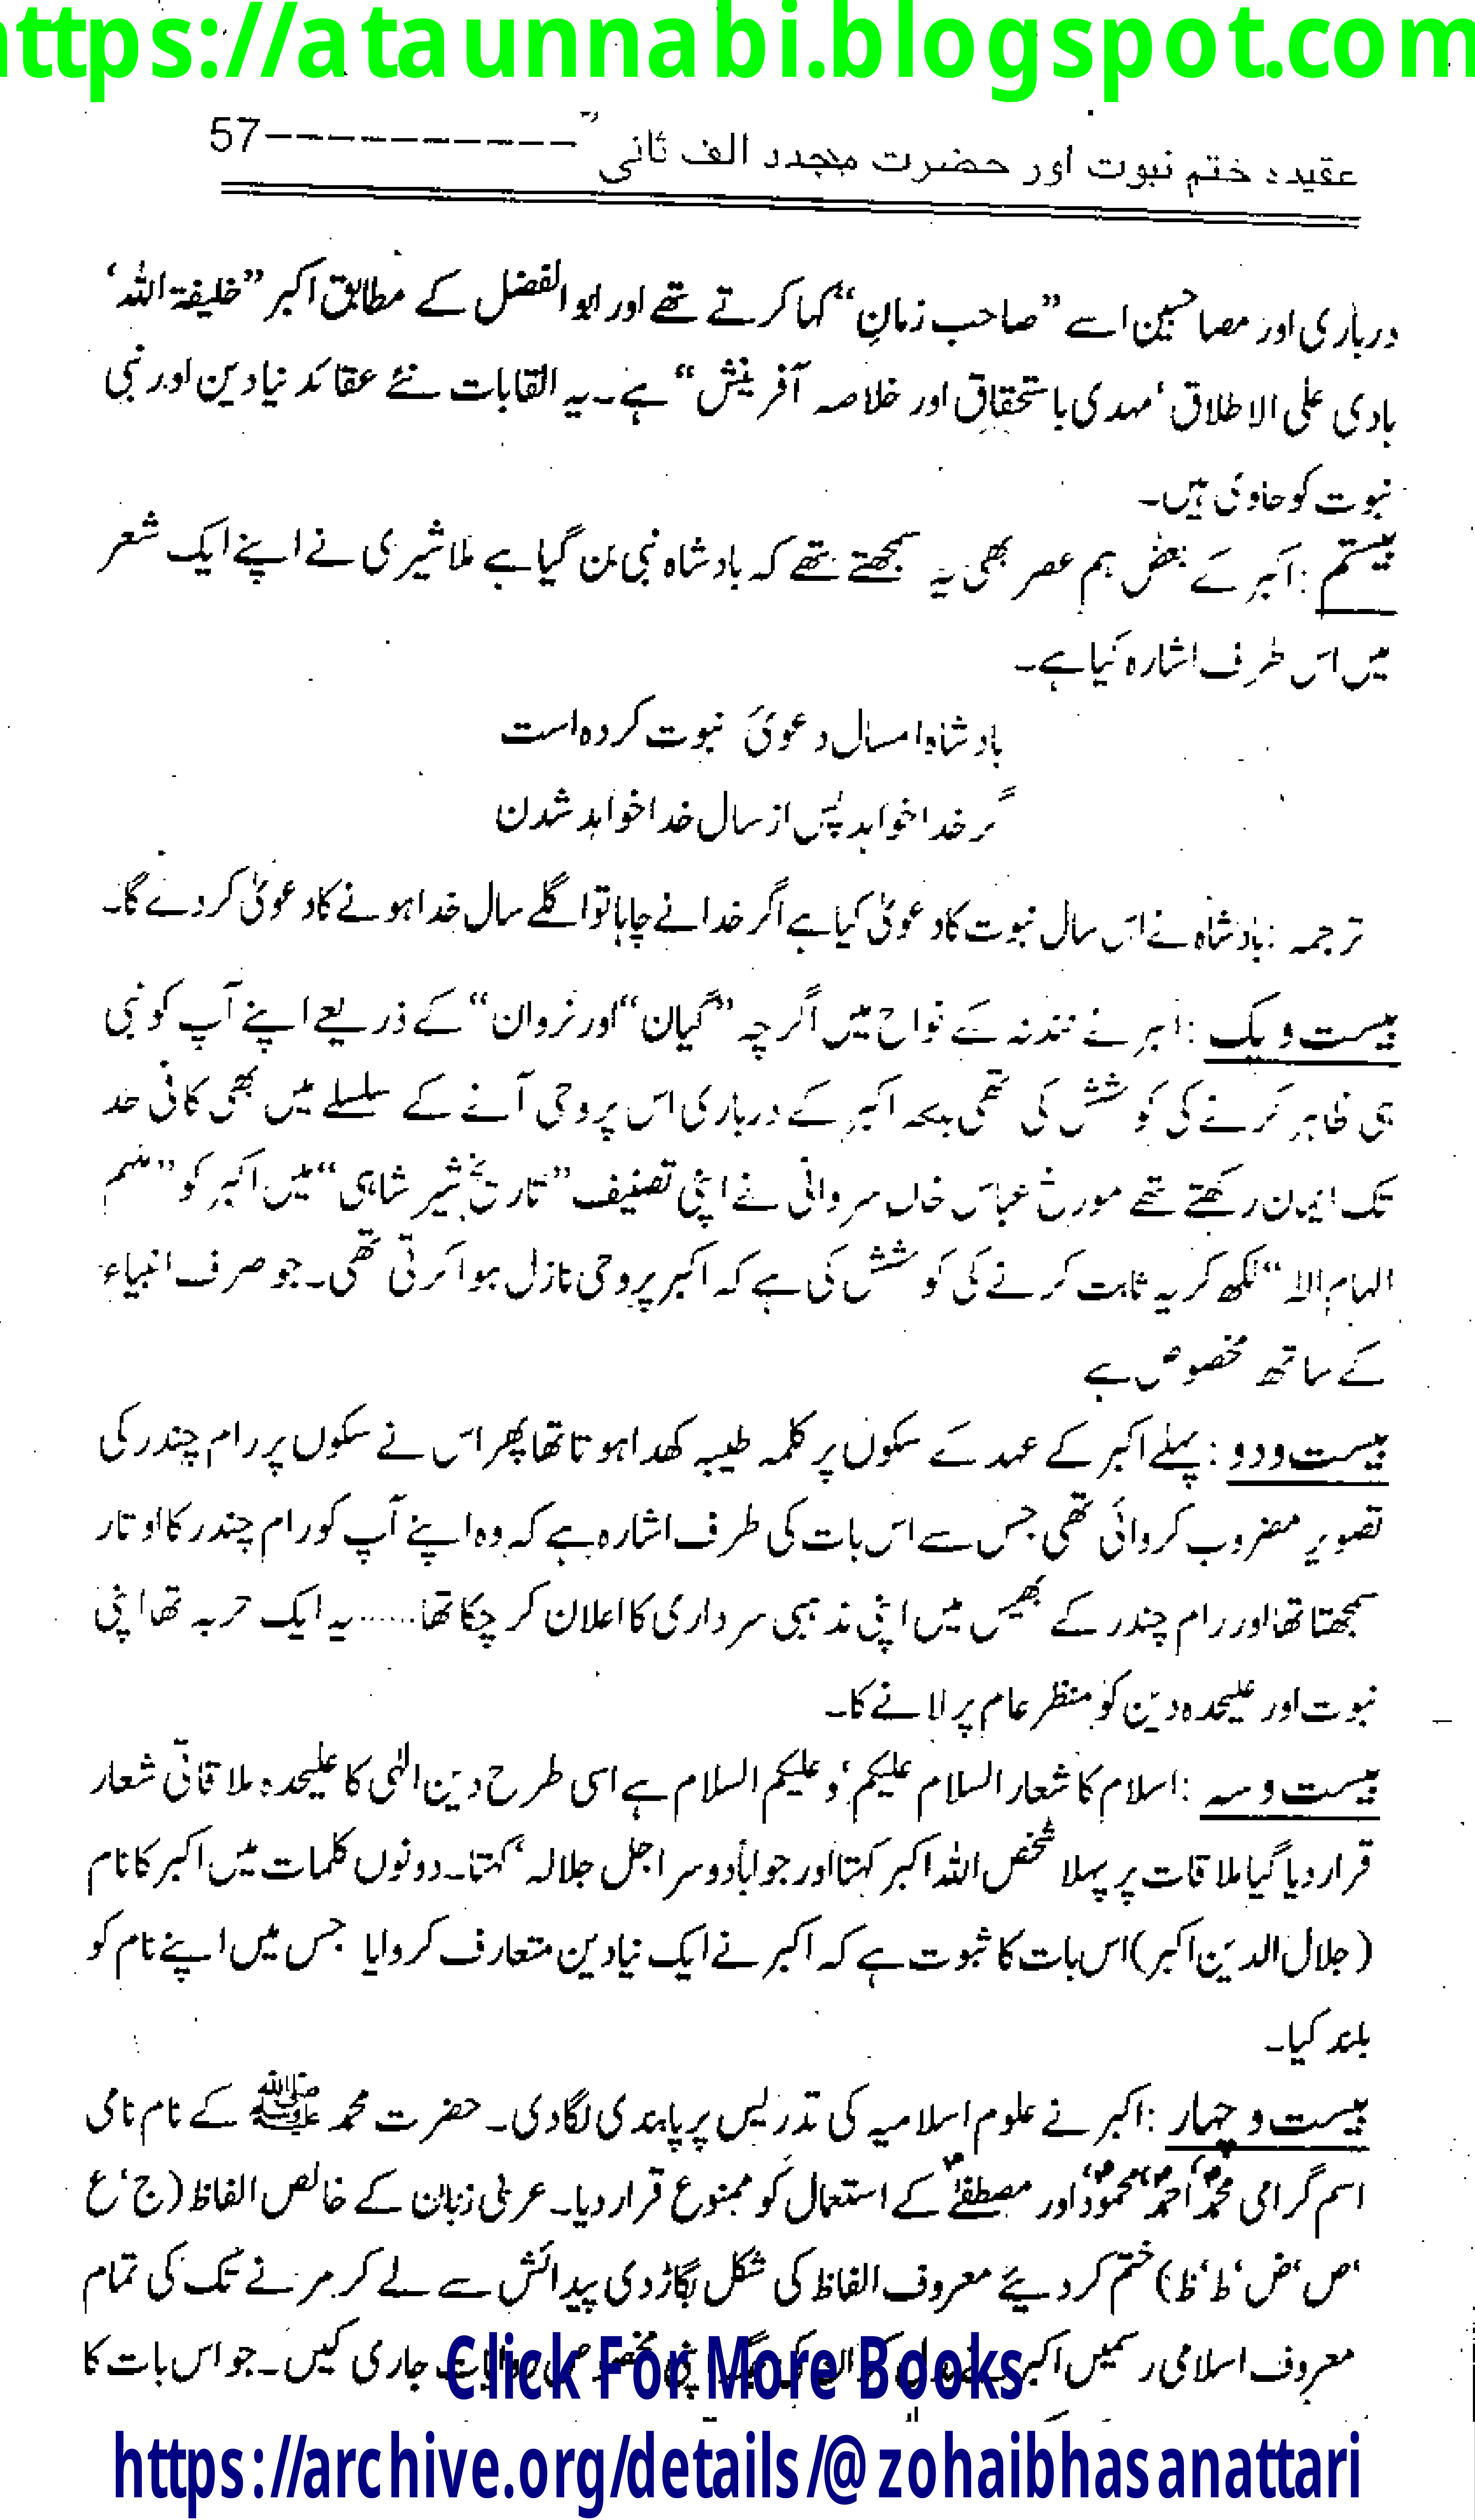 https://ataunnabi.blogspot.com
عقیدہ ختم نبوت اور حضرت مجدد الف ثانیؒ ----------57
درباری اور مصاحبین اسے ”صاحب زمان“ کہا کرتے تھے اور ابوالفضل کے مطابق اکبر ”خلیفۃ اللہ‘
ہادی علی الاطلاق‘ مہدی باستحقاق اور خلاصہ آفرینش“ ہے۔ یہ القابات نئے عقائد نیا دین اور نبی
نبوت کو حاوی ہیں۔
بیستم : اکبر کے بعض ہم عصر بھی یہ سمجھتے تھے کہ بادشاہ نبی بن گیا ہے ملا شیری نے اپنے ایک شعر
میں اس طرف اشارہ کیا ہے۔
بادشاہ امسال دعویٰ نبوت کردہ است
گر خدا خواہد پس از سال خدا خواہد شدن
ترجمہ : بادشاہ نے اس سال نبوت کا دعویٰ کیا ہے اگر خدا نے چاہا تو اگلے سال خدا ہونے کا دعویٰ کر دے گا۔
بیست و یک : اکبر نے نندنہ کے نواح میں اگرچہ ”گیان“ اور نروان“ کے ذریعے اپنے آپ کو نبی
ہی ظاہر کرنے کی کوشش کی تھی بلکہ اکبر کے درباری اس پر وحی آنے کے سلسلے میں بھی کافی حد
تک ایمان رکھتے تھے مورخ عباس خاں سروانی نے اپنی تصنیف ”تاریخ شیر شاہی“ میں اکبر کو ”ملہم
الہام الہ“ لکھ کر یہ ثابت کرنے کی کوشش کی ہے کہ اکبر پر وحی نازل ہوا کرتی تھی۔ جو صرف انبیاء
کے ساتھ مخصوص ہے
بیست و دو : پہلے اکبر کے عہد کے سکوں پر کلمہ طیبہ کھدا ہوتا تھا پھر اس نے سکوں پر رام چندر کی
تصویر مضروب کروائی تھی جس سے اس بات کی طرف اشارہ ہے کہ وہ اپنے آپ کو رام چندر کا اوتار
سمجھتا تھا اور رام چندر کے بھیس میں اپنی مذہبی سرداری کا اعلان کر چکا تھا...... یہ ایک حربہ تھا اپنی
نبوت اور علیحدہ دین کو منظر عام پر لانے کا۔
بیست و سہ : اسلام کا شعار السلام علیکم‘ و علیکم السلام ہے اسی طرح دین الٰہی کا علیحدہ ملاقاتی شعار
قرار دیا گیا ملاقات پر پہلا شخص اللہ اکبر کہتا اور جواباً دوسرا جل جلالہ‘ کہتا۔ دونوں کلمات میں اکبر کا نام
(جلال الدین اکبر) اس بات کا ثبوت ہے کہ اکبر نے ایک نیا دین متعارف کروایا جس میں اپنے نام کو
بلند کیا۔
بیست و چہار : اکبر نے علوم اسلامیہ کی تدریس پر پابندی لگا دی۔ حضرت محمد ﷺ کے نام نامی
اسم گرامی محمدؐ‘ احمدؐ‘ محمودؐ‘ اور مصطفےٰؐ کے استعمال کو ممنوع قرار دیا۔ عربی زبان کے خالص الفاظ (ح‘ ع
‘ص‘ ض‘ ط‘ ظ) ختم کر دیئے معروف الفاظ کی شکل بگاڑ دی پیدائش سے لے کر مرنے تک کی تمام
معروف اسلامی رسمیں اکبر جاری کیں۔ جو اس بات کا
Click For More Books
https://archive.org/details/@zohaibhasanattari